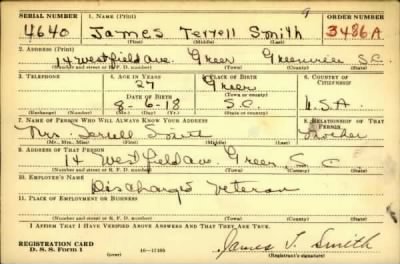 9
SERIAL NUMBER 1. NAME (Print) ORDER NUMBER
4640 James Terrell Smith 3486A
(First) (Middle) (Last)
2. ADDRESS (Print)
14 Westfield ave. Greer Greenville S.C.
(Number and street or R. F. D. number) (Town) (County) (State)
3. TELEPHONE 4. AGE IN YEARS 5. PLACE OF BIRTH 6. COUNTRY OF CITIZENSHIP
27 Greer
(Town or county)
DATE OF BIRTH
8-6-18 S.C. U.S.A.
(Exchange) (Number) (Mo.) (Day) (Yr.) (State or country)
7. NAME OF PERSON WHO WILL ALWAYS KNOW YOUR ADDRESS 8. RELATIONSHIP OF THAT PERSON
Mrs. Smith Mother
(Mr., Mrs., Miss) (First) (Middle) (Last)
9. ADDRESS OF THAT PERSON
14 Westfield ave. Greer, S.C.
(Number and street or R. F. D. number) (Town) (County) (State)
10. EMPLOYER'S NAME
Discharged Veteran
11. PLACE OF EMPLOYMENT OR BUSINESS
(Number and street or R. F. D. number) (Town) (County) (State)
I AFFIRM THAT I HAVE VERIFIED ABOVE ANSWERS AND THAT THEY ARE TRUE.
REGISTRATION CARD
D. S. S. Form 1 (over) 16-17105 James T. Smith
(Registrant's signature)